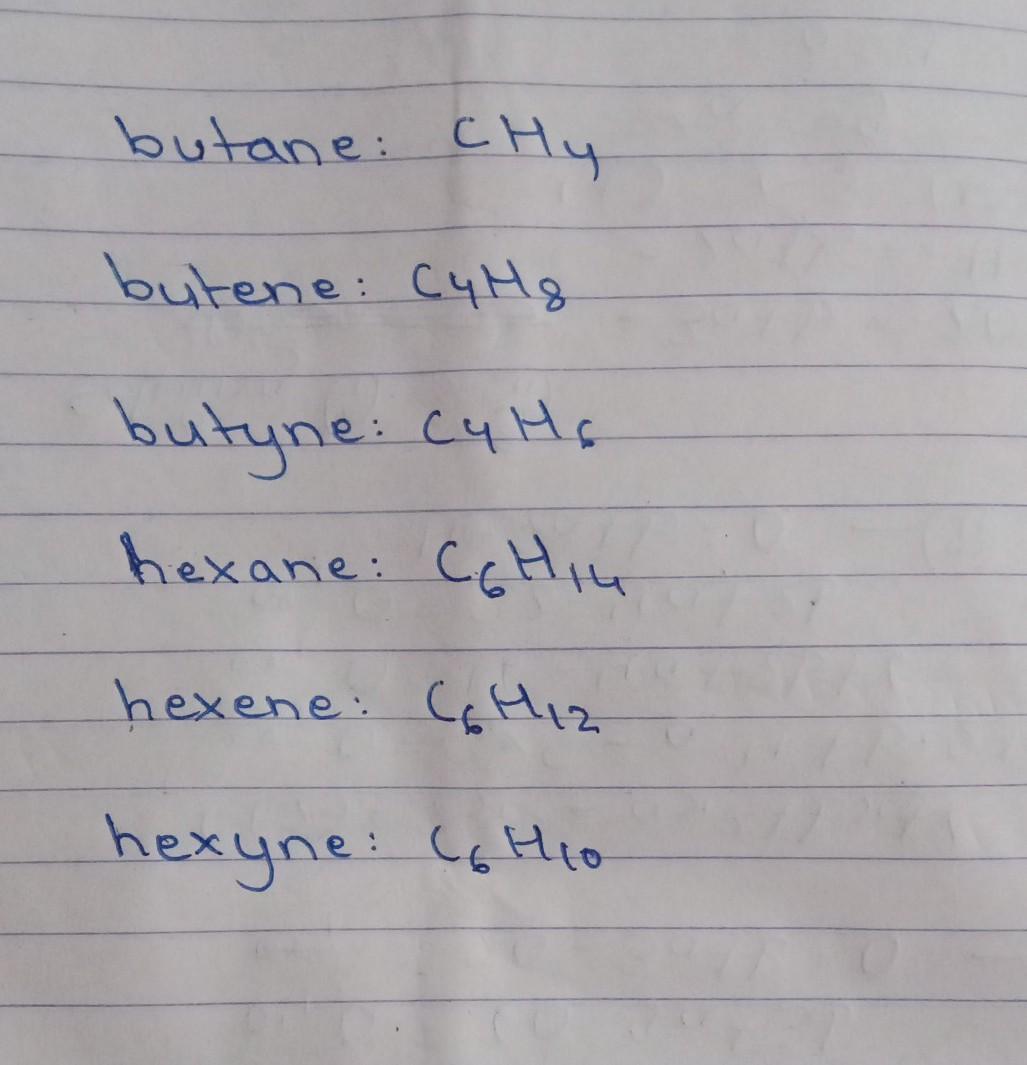 butane: CH4
butene: C4H8
butyne: C4H6
hexane: C6H14
hexene: C6H12
hexyne: C6H10